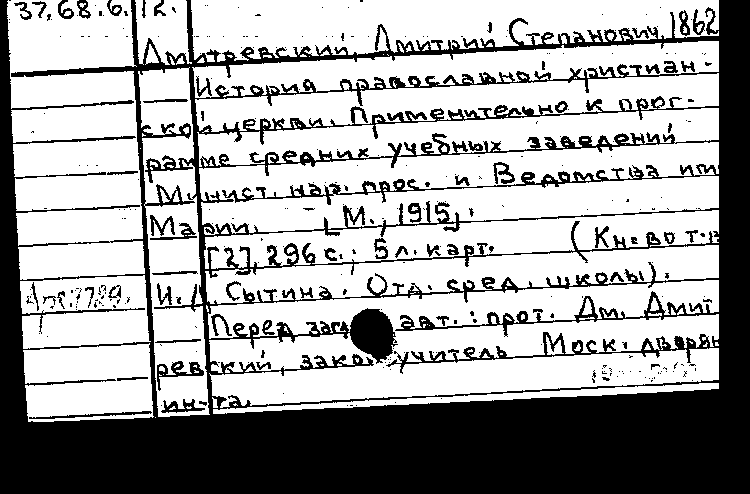 37.68.6.12.
Дмитревский, Дмитрий Степанович, 1862
История православной христиан-
ской церкви. Применительно к прог-
рамме средних учебных заведений
Минист. нар. прос. и Ведомства имп
Марии. [М., 1915].
[2], 296 с.; 5 л. карт. (Кн-во т-в
И.Д. Сытина. Отд. сред. школы).
Перед авт.: прот. Дм. Дмит
ревский, законоучитель Моск. дворян
ин-та.